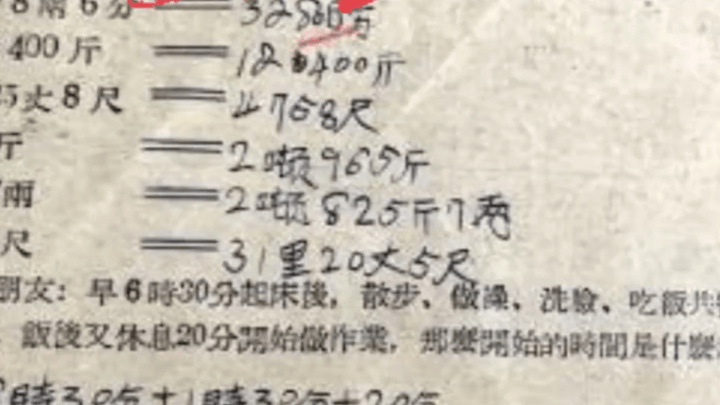 8兩6分══32800分
400斤══120400斤
5丈8尺══4758尺
斤══2噸965斤
兩══2噸825斤7两
尺══31里20丈5尺
朋友：早6時30分起床後，散步、做操、洗臉、吃飯共
飯後又休息20分開始做作業，那麽開始的時間是什麽
時30分+1時30分+20分